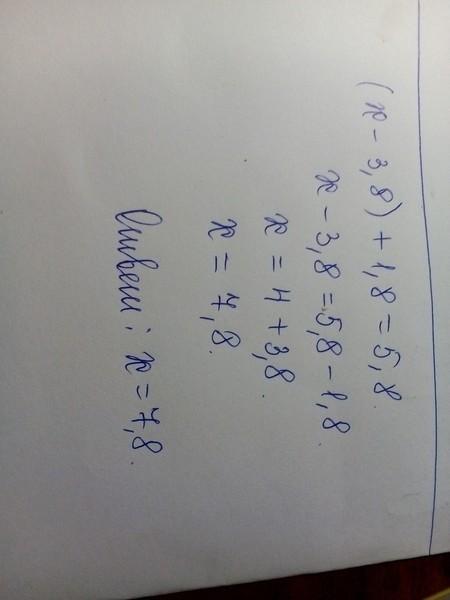 (x - 3,8) + 1,8 = 5,8.
x - 3,8 = 5,8 - 1,8.
x = 4 + 3,8.
x = 7,8.
Ответ: x = 7,8.